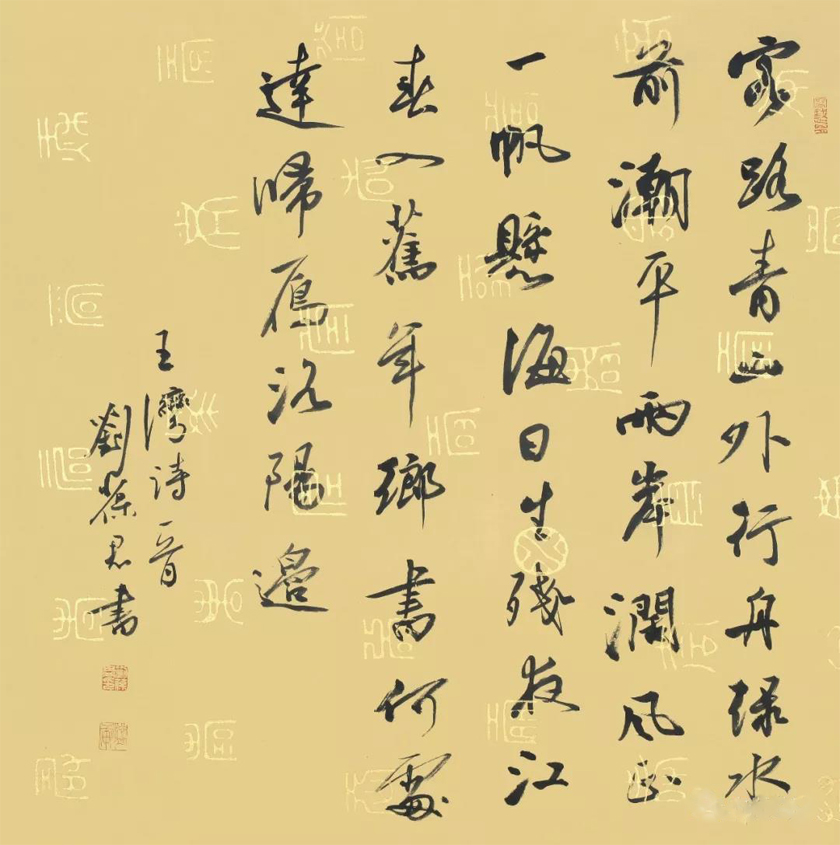 家路青山外行舟绿水
前潮平兩岸濶風正
一帆懸海日生殘夜江
春入舊年鄉書何處
達歸雁洛陽邊
王灣詩一首
劉書